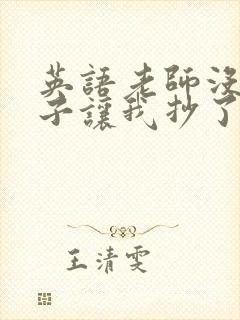 英語老師沒
子讓我抄了
王清雯